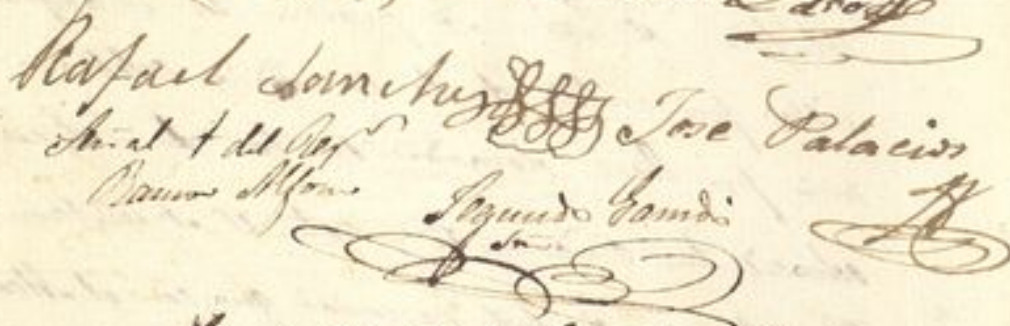 Rafael Sanchez Jose Palacios
Señal + del Regr
Ramon Alfonso
Segundo